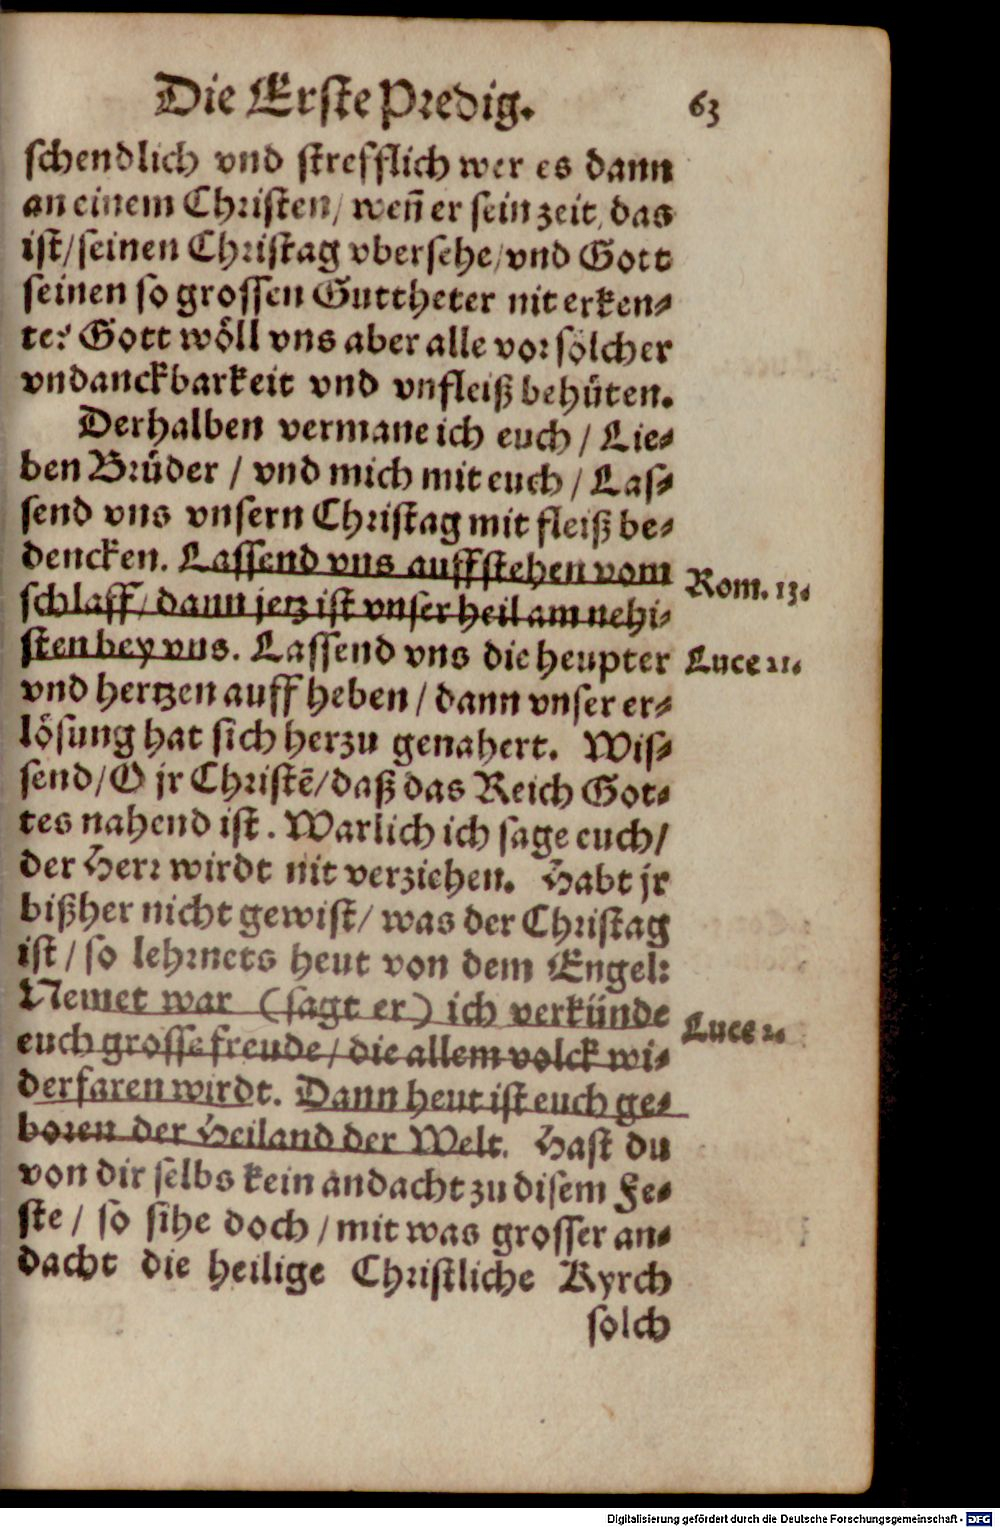 Die Erste Predig. 63
schendlich vnd strefflich wer es dann
an einem Christen/ weñ er sein zeit/ das
ist/ seinen Christag vbersehe/ vnd Gott
seinen so grossen Guttheter nit erken-
te? Gott wöll vns aber alle vor solcher
vndanckbarkeit vnd vnfleiß behüten.
Derhalben vermane ich euch / Lie-
ben Brüder / vnd mich mit euch / Las-
send vns vnsern Christag mit fleiß be-
dencken. Lassend vns auffstehen vom
schlaff/ dann jetz ist vnser heil am nehi- Rom. 13.
sten bey vns. Lassend vns die heupter Luce 21.
vnd hertzen auff heben / dann vnser er-
lösung hat sich herzu genahert. Wis-
send/ O jr Christē/ daß das Reich Got-
tes nahend ist. Warlich ich sage euch/
der Herr wirdt nit verziehen. Habt jr
bißher nicht gewist/ was der Christag
ist / so lehrnets heut von dem Engel:
Nemet war (sagt er) ich verkünde
euch grosse freude/ die allem volck wi- Luce 2.
derfaren wirdt. Dann heut ist euch ge-
boren der Heiland der Welt. Hast du
von dir selbs kein andacht zu disem Fe-
ste / so sihe doch / mit was grosser an-
dacht die heilige Christliche Kyrch
solch
Digitalisierung gefördert durch die Deutsche Forschungsgemeinschaft - DFG